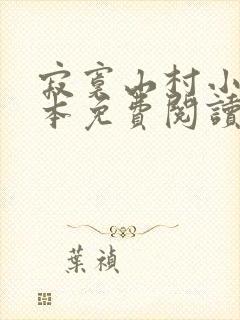 寂寞山村小
本免費閱讀
葉禎